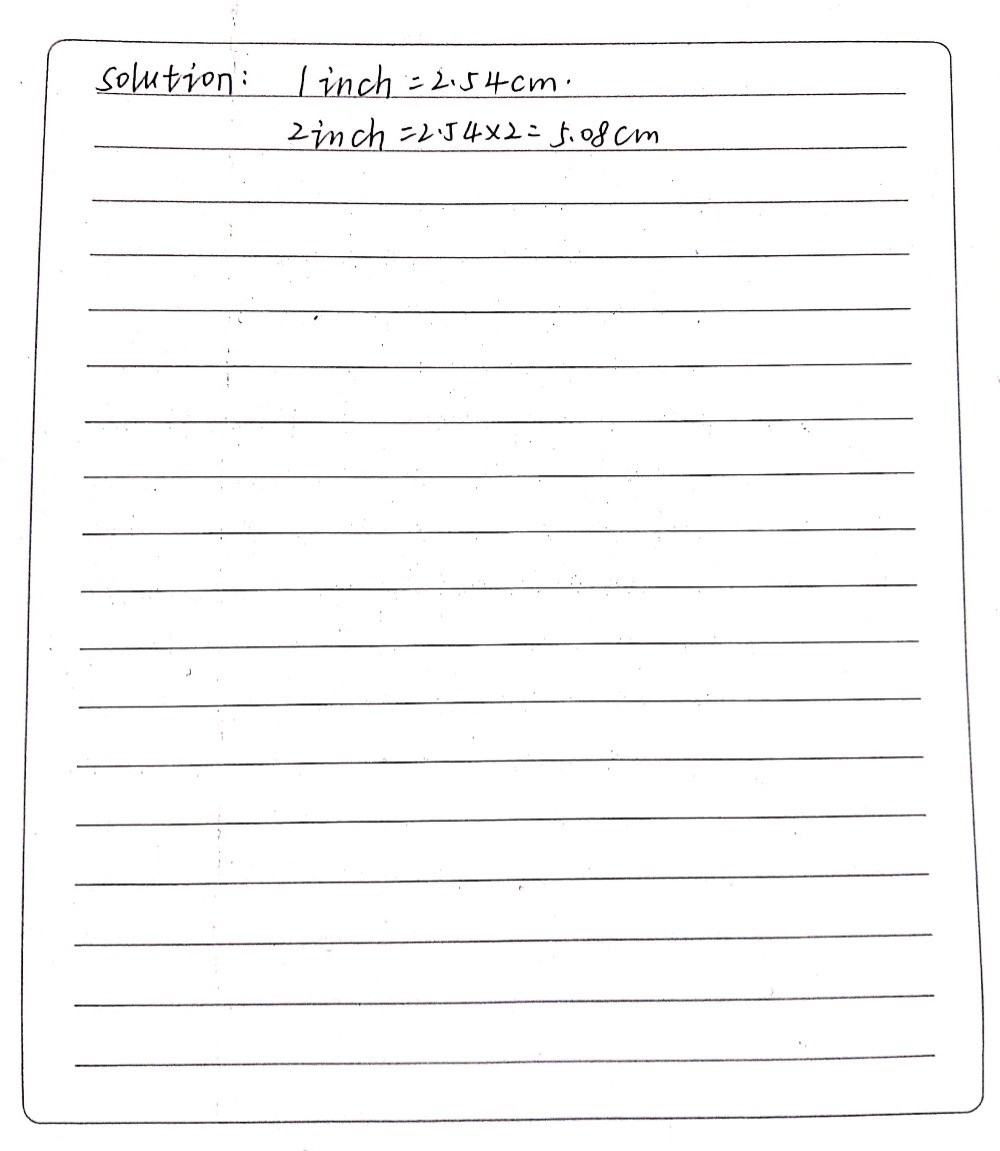 solution: 1 inch = 2.54cm.
2inch = 2.54×2 = 5.08cm